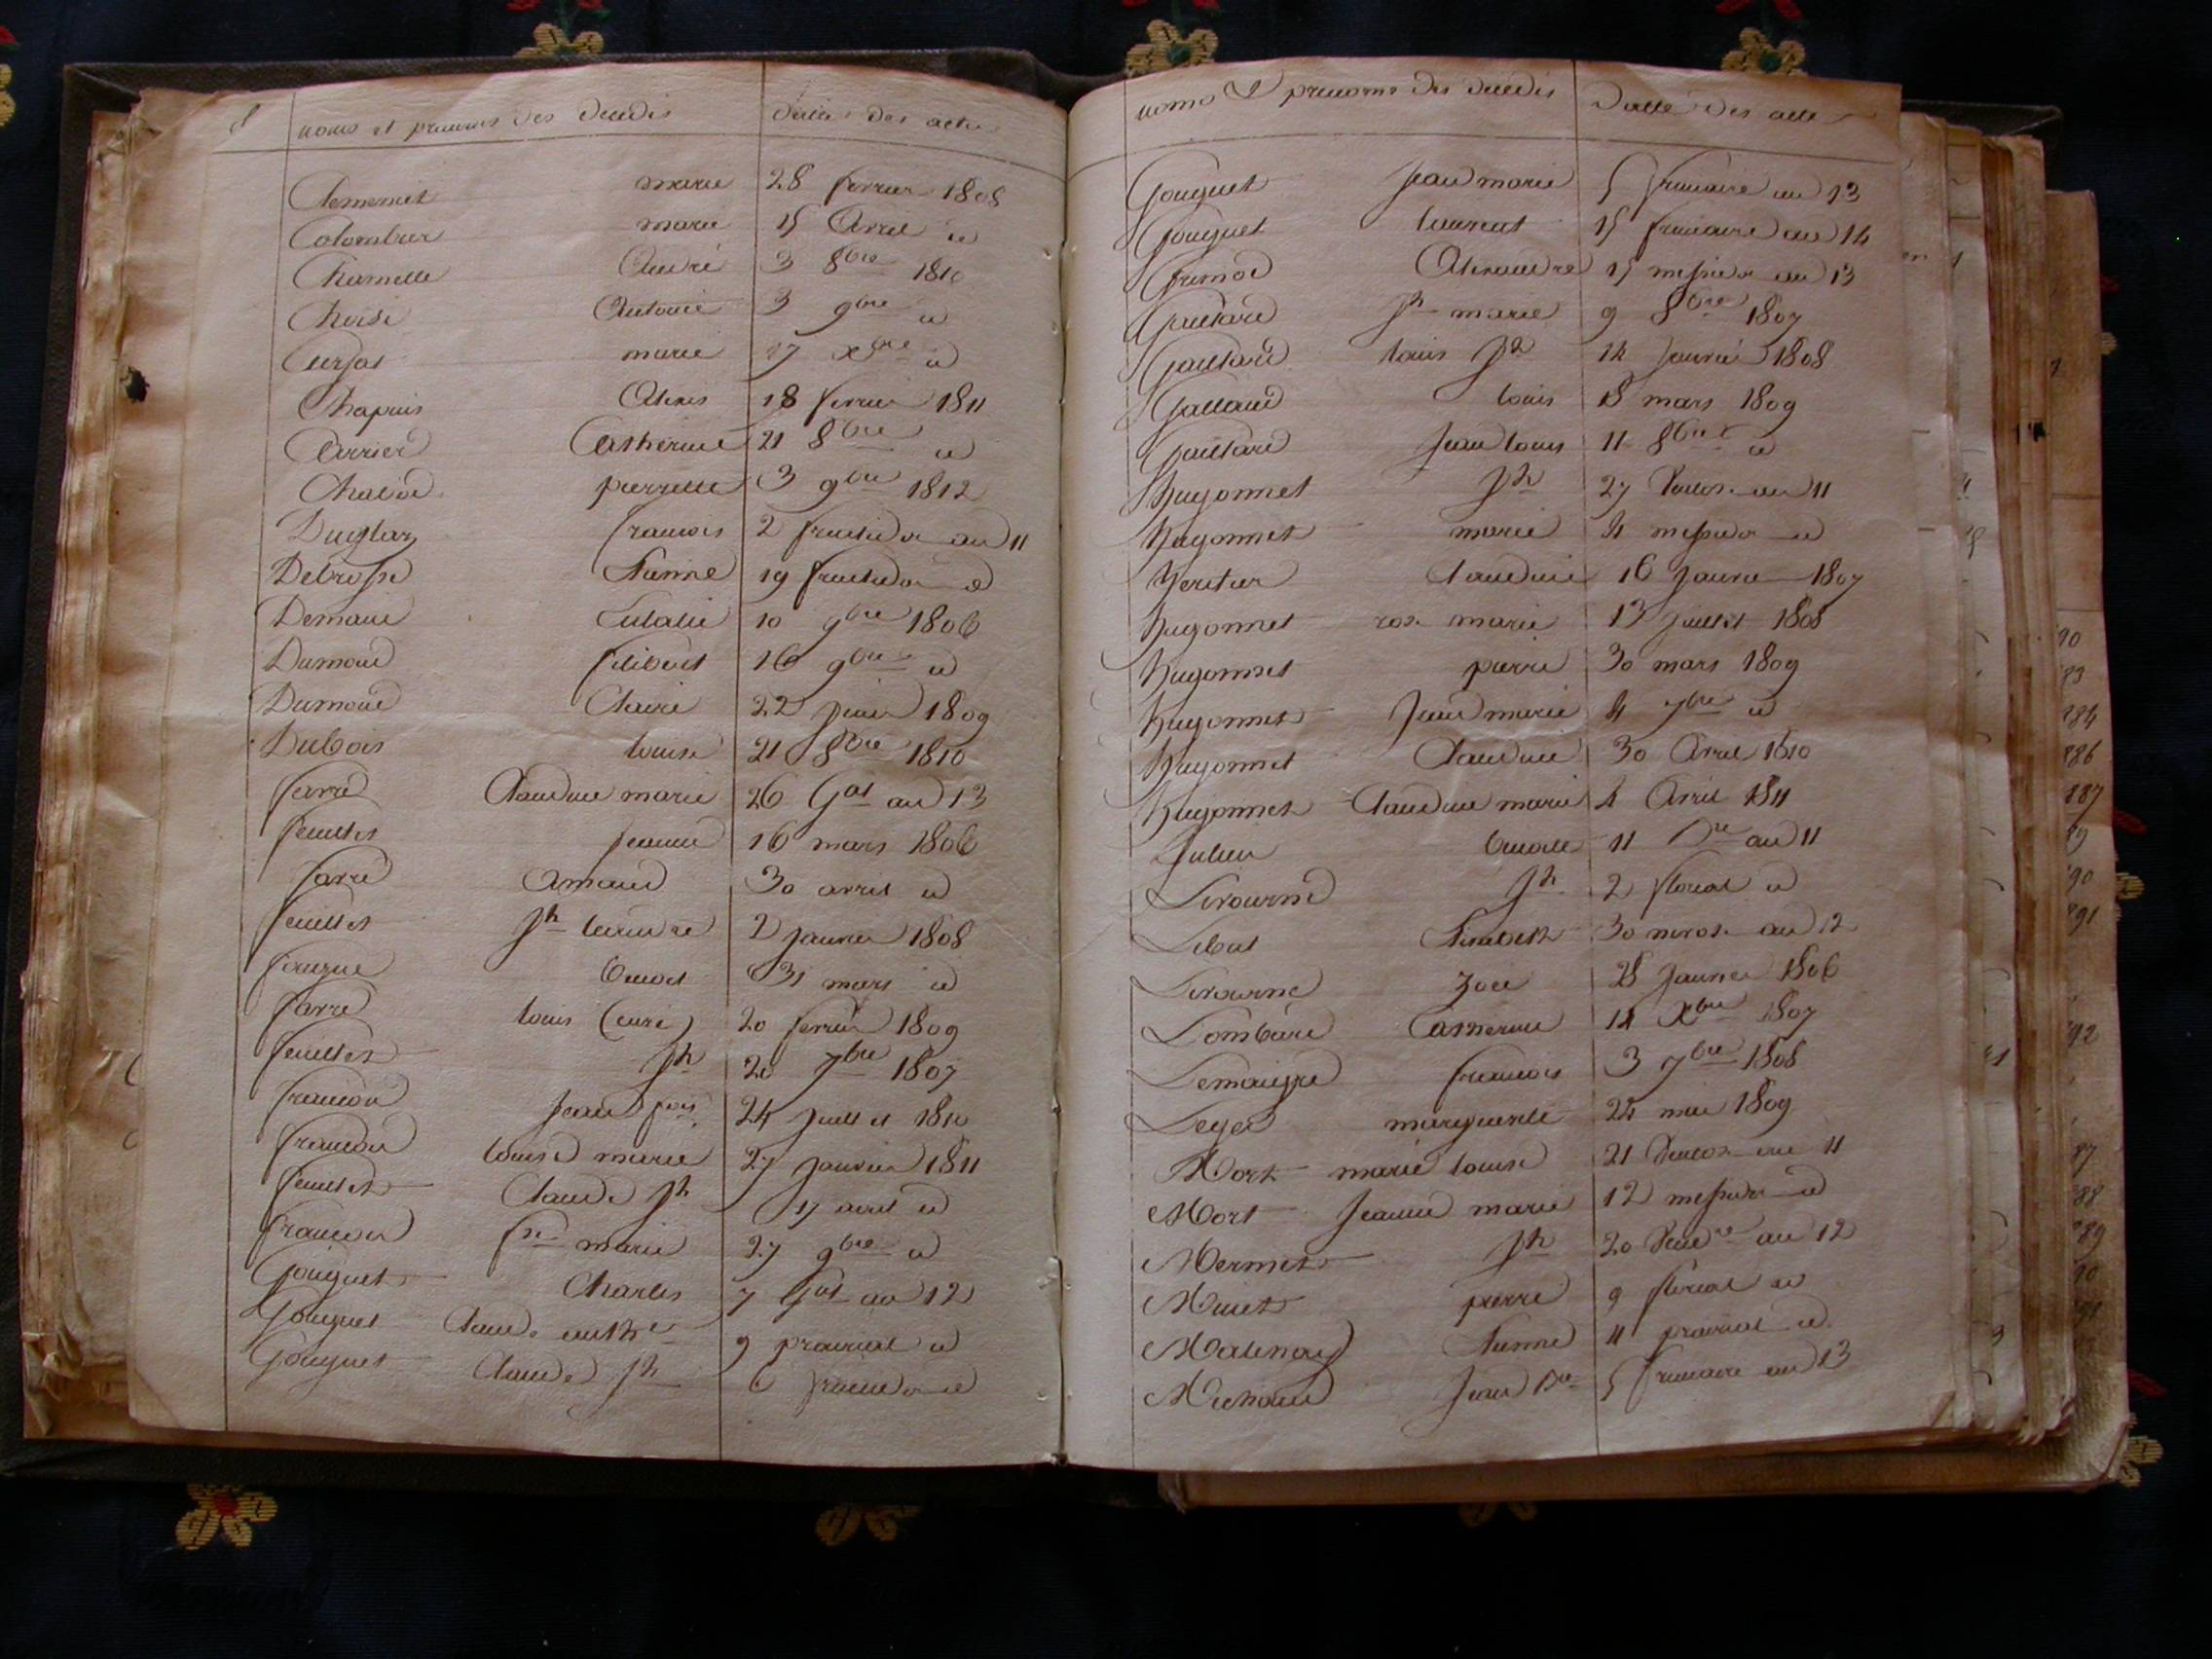 noms et prenoms des decedés datte des actes
Clemencet marie 28 fevrier 1808
Colombier marie 15 Avril id
Charnelle André 3 8bre 1810
Choise Antoine 3 9bre id
Curfat marie 17 Xbre id
Chapuis Alexis 18 fevrier 1811
Carrier Catherine 21 8bre id
Chabod pierrette 3 9bre 1812
francois 2 fructidor an 11
Debrosse Etienne 19 fructidor id
Demaire Eulalie 10 9bre 1806
Dumond filibert 16 9bre id
Dumond Claire 22 juin 1809
Dubois louise 21 8bre 1810
farre Claudine marie 26 Gal an 13
feuillet jeanne 16 mars 1806
farre Amand 30 avril id
feuillet Jh leandre 2 janvier 1808
Benoit 31 mars id
farre louis (curé) 20 fevrier 1809
feuillet Jh 20 7bre 1807
francon jean fois 24 juillet 1810
francon louise marie 27 janvier 1811
feuillet Claude Jh 17 avril id
francon fse marie 27 9bre id
Gouguet Charles 7 Gal an 12
Gouguet Claude anthe 9 prairial id
Gouguet Claude Jh 6 id
noms & prenoms des decedés Datte des acte
Gouguet jean marie 5 frimaire an 13
Gouguet laurent 15 frimaire an 14
Grimod Alexandre 15 messidor an 13
Gaillard Jh marie 9 8bre 1807
Gaillard louis Jh 14 janvié 1808
Galland louis 18 mars 1809
Gaillard jean louis 11 8bre id
hugonnet Jh 27 Ventose an 11
hugonnet marie 4 messidor id
heritier Claudine 16 janvier 1807
hugonnet rose marie 13 juillet 1808
hugonnet pierre 30 mars 1809
hugonnet jean marie 4 7bre id
hugonnet Claudine 30 Avril 1810
hugonnet Claudine marie 4 Avril 1811
Julien Benoite 11 an 11
Jh 2 floreal id
Elisabeth 30 nivose an 12
Zoee 28 janvier 1806
Lombard Catherine 14 Xbre 1807
Lemaigre francois 3 7bre 1808
Leger marguerite 24 mai 1809
Mort marie louise 21 Ventose an 11
Mort Jeanne marie 12 messidor id
Mermet Jh 20 Vendre an 12
Muet pierre 9 floreal id
Matenay Etienne 11 prairial id
Michaud Jean Bte 5 frimaire an 13